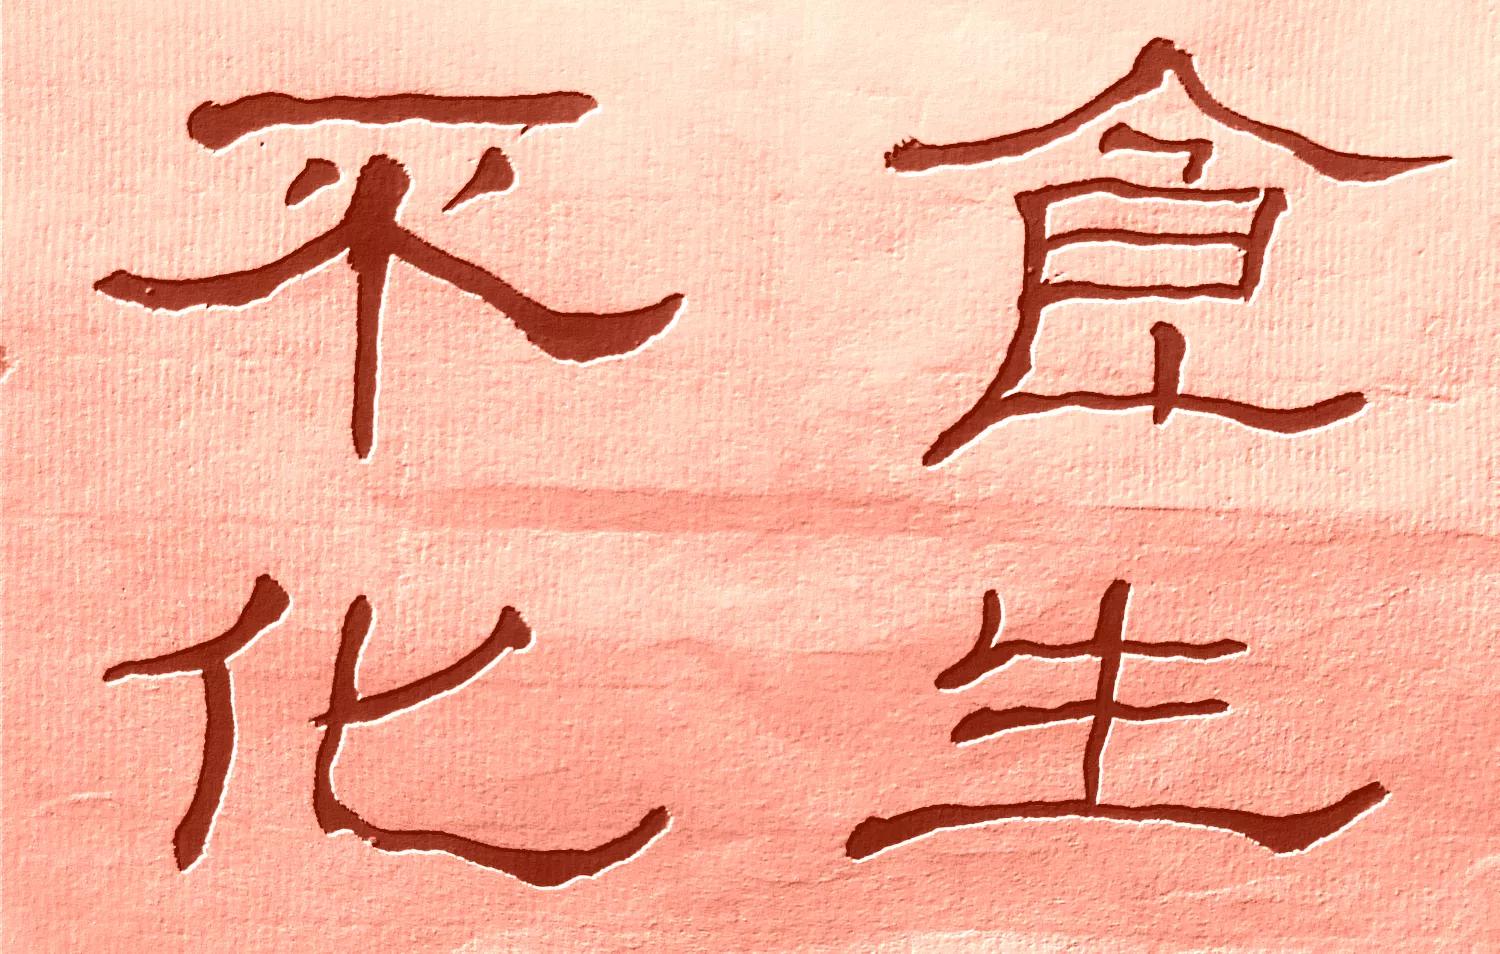 食生
不化